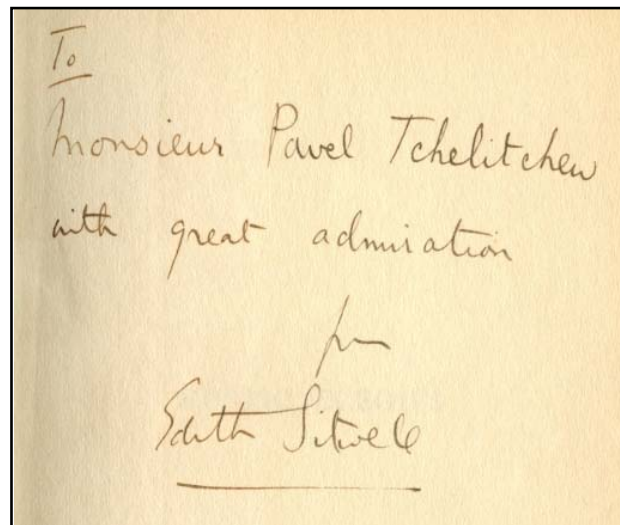 To
Monsieur Pavel Tchelitchew
with great admiration
from
Edith Sitwell